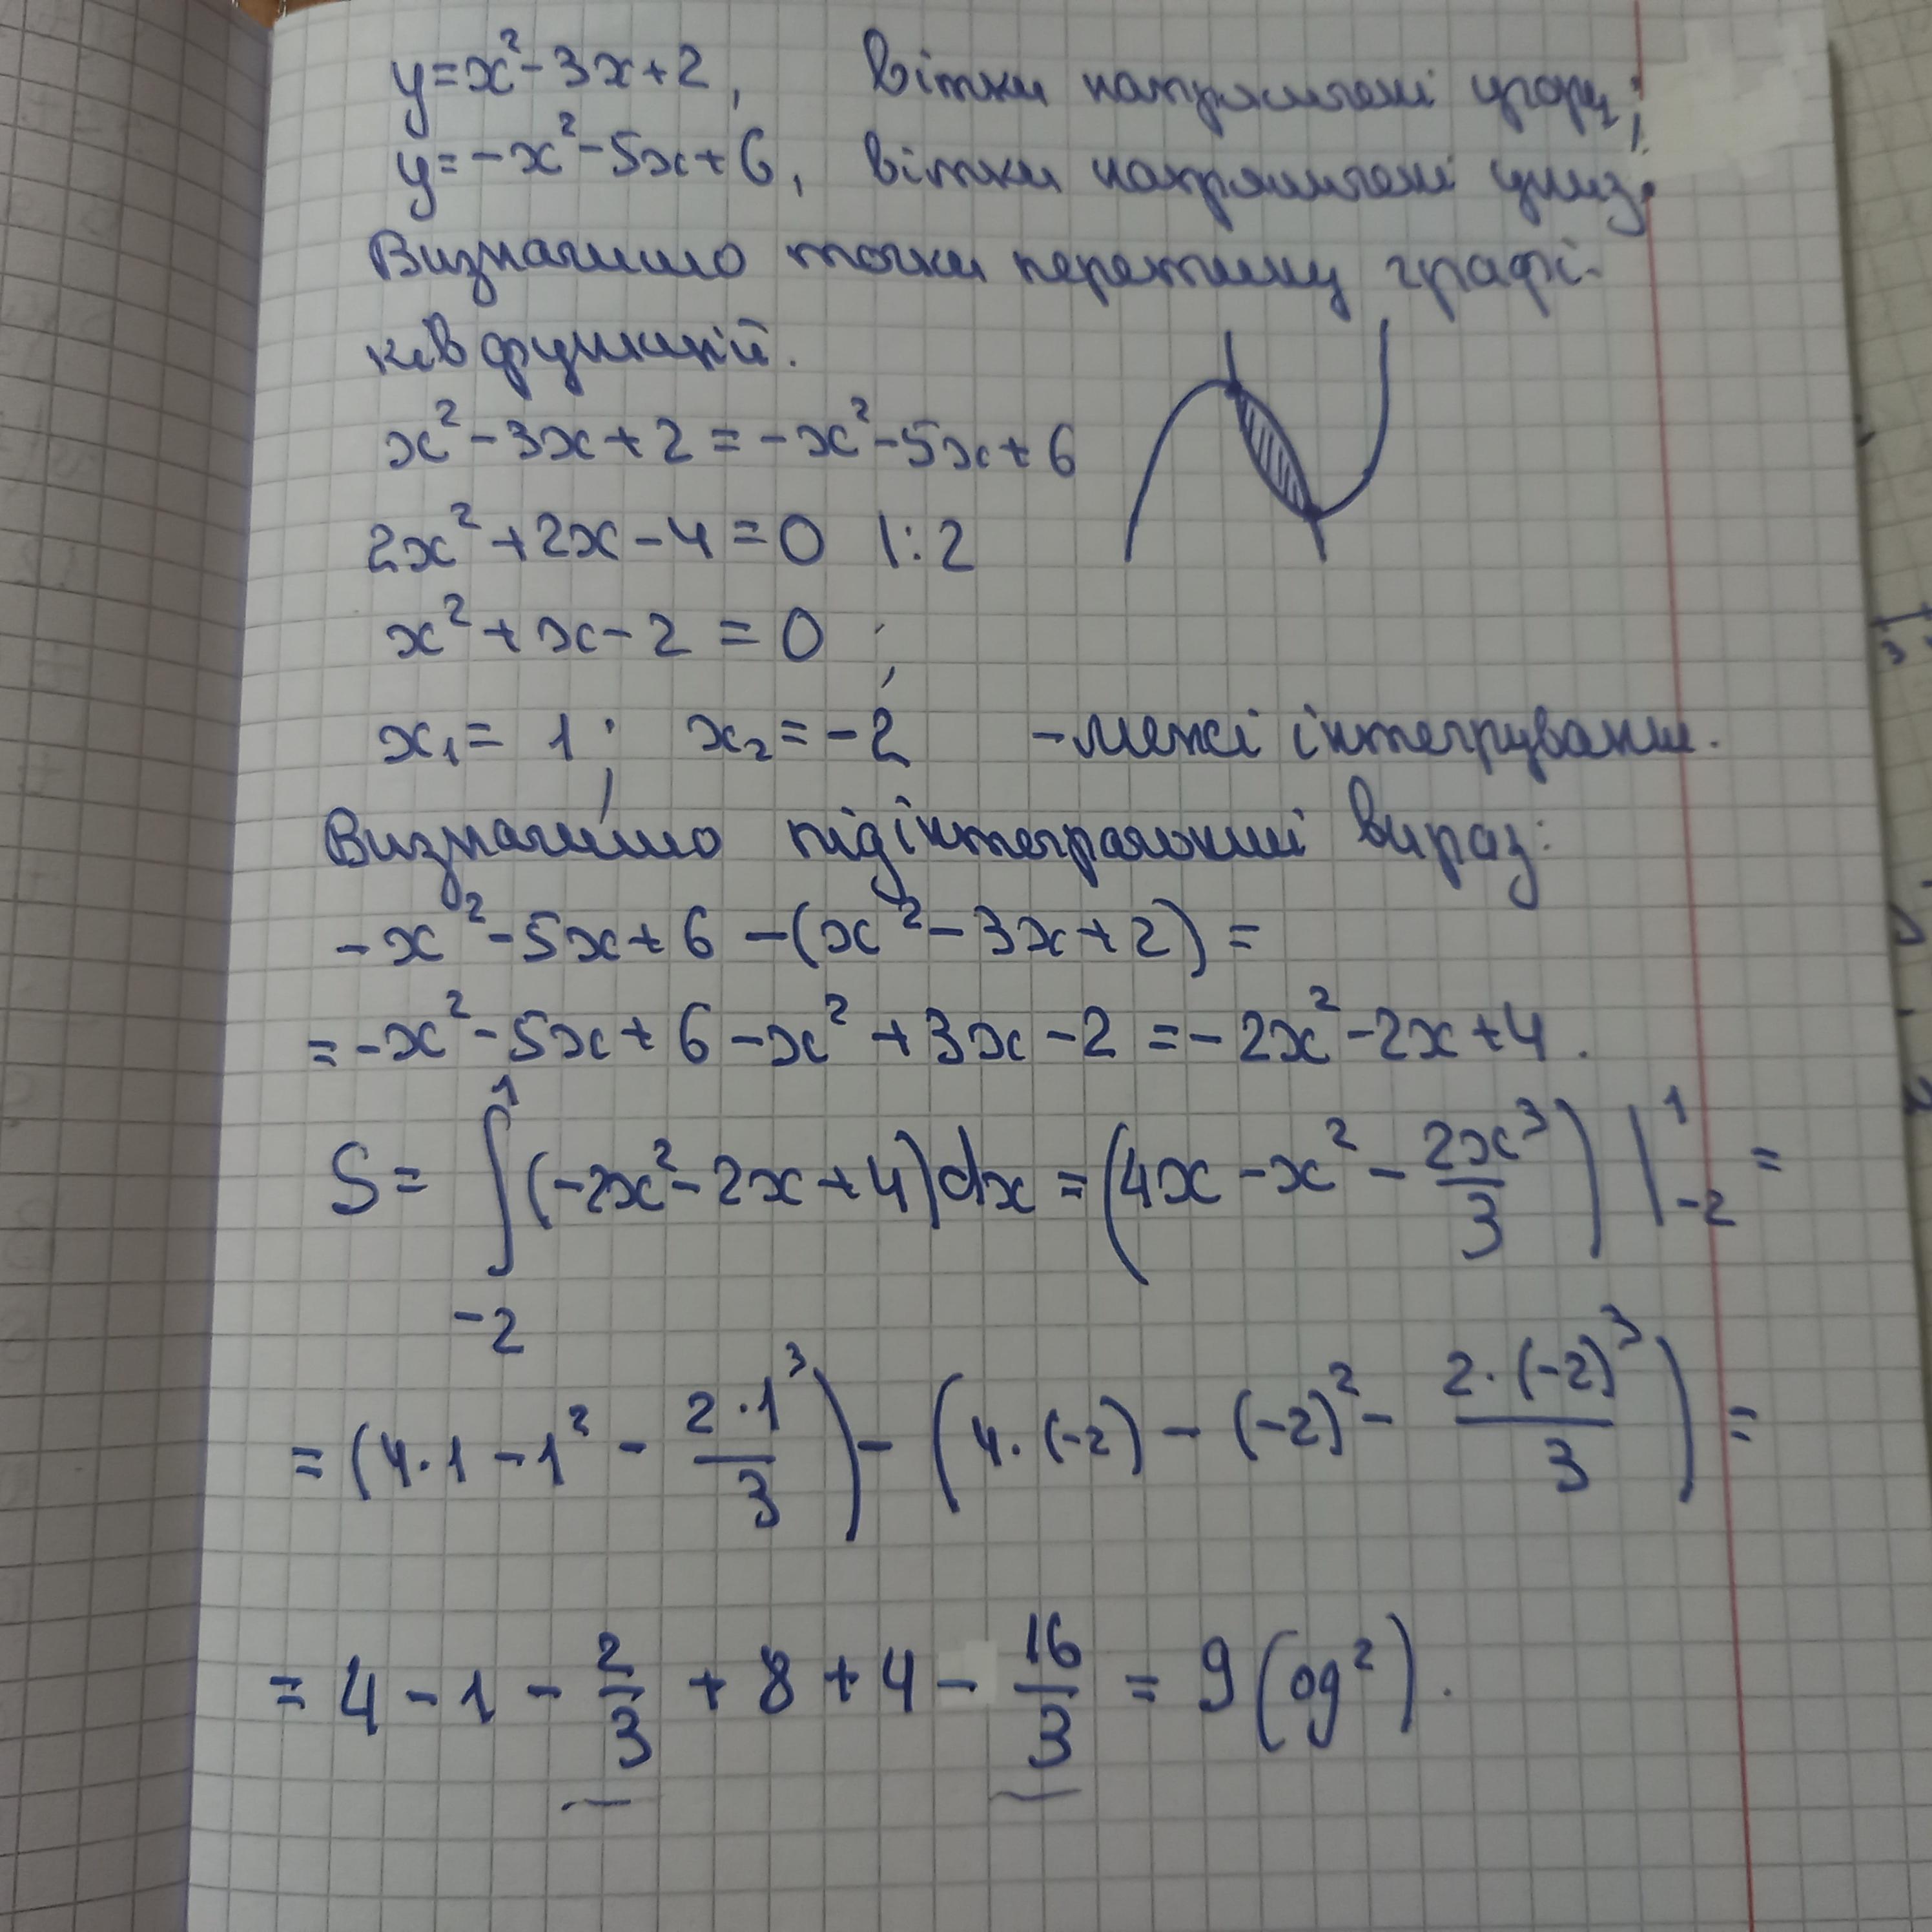 y=x²-3x+2, вітки напрямлені угору;
y=-x²-5x+6, вітки напрямлені униз.
Визначимо точки перетину графі-
ків функцій.
x²-3x+2=-x²-5x+6
2x²+2x-4=0 |:2
x²+x-2=0;
x₁=1; x₂=-2 -межі інтегрування.
Визначимо підінтегральний вираз:
-x²-5x+6-(x²-3x+2)=
=-x²-5x+6-x²+3x-2=-2x²-2x+4.
S=∫₋₂¹(-2x²-2x+4)dx=(4x-x²-2x³/3)|₋₂¹=
=(4·1-1²-2·1³/3)-(4·(-2)-(-2)²-2·(-2)³/3)=
=4-1-2/3+8+4-16/3=9(од²).